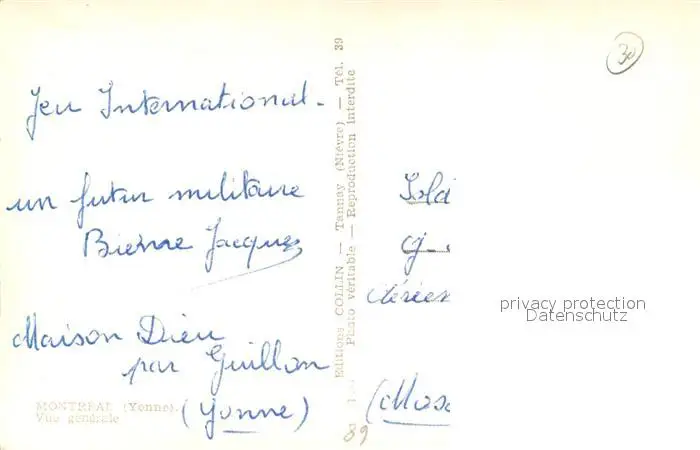 Jeu International.
un futur militaire
Bierne Jacques
Maison Dieu
par Guillon
(Yonne)
MONTREAL (Yonne).
Vue générale
Editions COLLIN — Tannay (Nièvre) — Tél. 39
Photo véritable — Reproduction interdite
89
30
privacy protection
Datenschutz